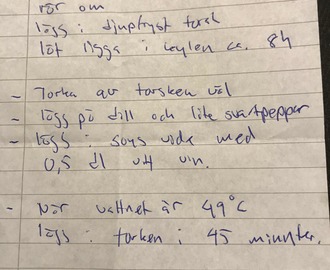 rör om
lägg i djupfryst torsk
låt ligga i kylen ca. 8h
- Torka av torsken väl
- lägg på dill och lite svartpeppar
- lägg i sous vide med
0,5 dl vitt vin.
- När vattnet är 49°C
lägg i torsken i 45 minuter.